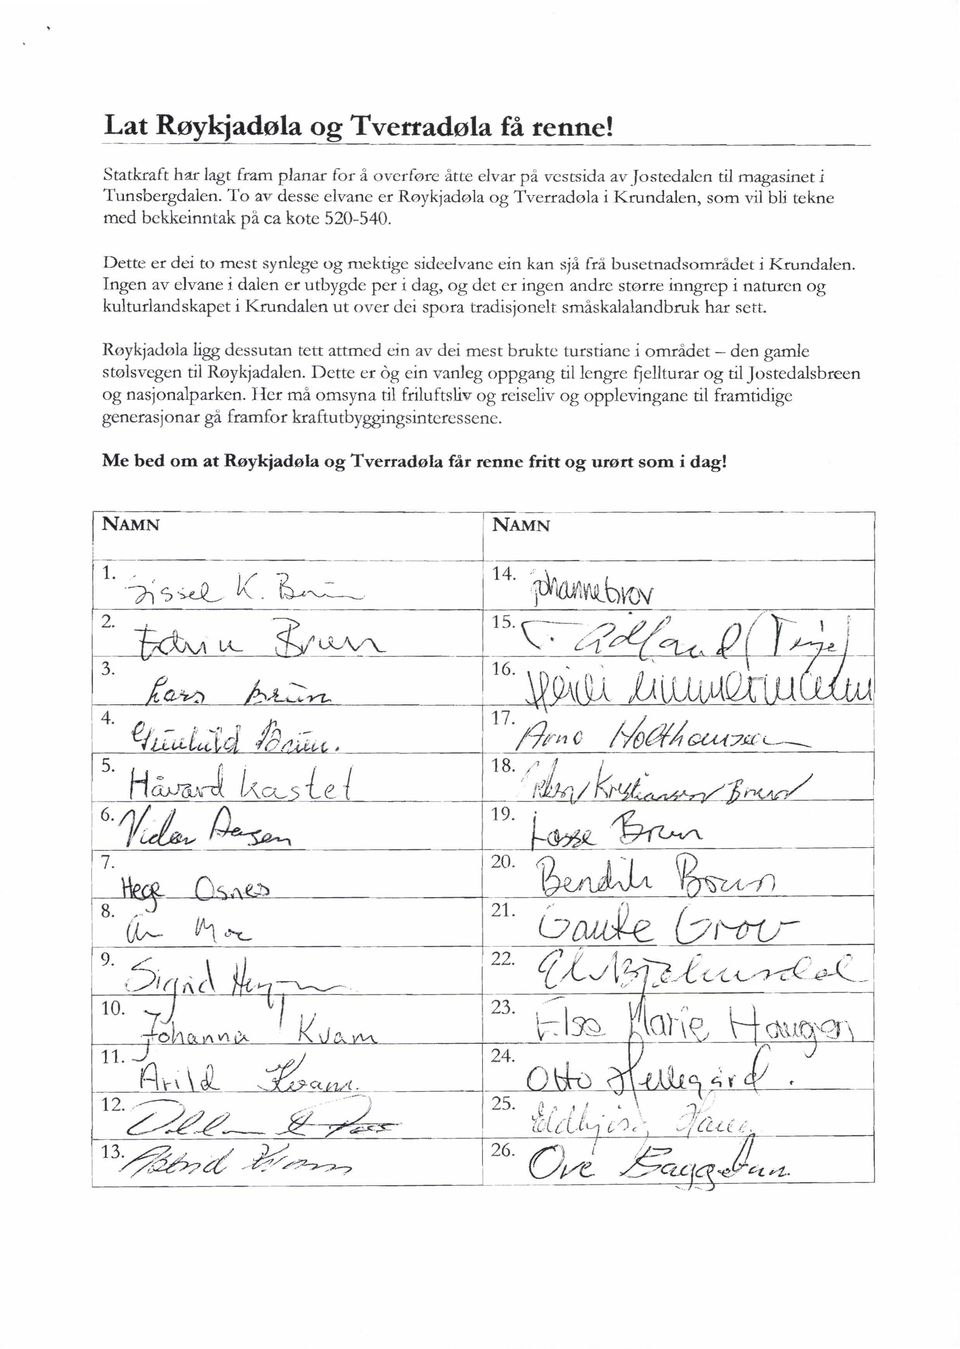 Lat Røykjadøla og Tverradøla få renne!
Statkraft har lagt fram planar for å overføre åtte elvar på vestsida av Jostedalen til magasinet i
Tunsbergdalen. To av desse elvane er Røykjadøla og Tverradøla i Krundalen, som vil bli tekne
med bekkeinntak på ca kote 520-540.
Dette er dei to mest synlege og mektige sideelvane ein kan sjå frå busetnadsområdet i Krundalen.
Ingen av elvane i dalen er utbygde per i dag, og det er ingen andre større inngrep i naturen og
kulturlandskapet i Krundalen ut over dei spora tradisjonelt småskalalandbruk har sett.
Røykjadøla ligg dessutan tett attmed ein av dei mest brukte turstiane i området – den gamle
stølsvegen til Røykjadalen. Dette er òg ein vanleg oppgang til lengre fjellturar og til Jostedalsbreen
og nasjonalparken. Her må omsyna til friluftsliv og reiseliv og opplevingane til framtidige
generasjonar gå framfor kraftutbyggingsinteressene.
Me bed om at Røykjadøla og Tverradøla får renne fritt og urørt som i dag!
NAMN
1. Sissel K. Brun
2. Edvin Bruun
3. Lars Bruun
4. Gunhild Bruun.
5. Håvard Kastet
6. Vidar Aasen
7. Hege Osnes
8. Moe
9. Sigrid
10. Johanna Kvam
11. Arild Kvam.
12.
13. Astrid
NAMN
14. Johanne Grov
15. Adland (Terje)
16. Heidi
17. Arne Holthausen
18. Kristiansen Bruun
19. Lasse Bruun
20. Bendik Bruun
21. Gaute Grov
22.
23. Else Marie Haugen
24. Otto Hellegård.
25. Eldbjørg Haug
26. Ove